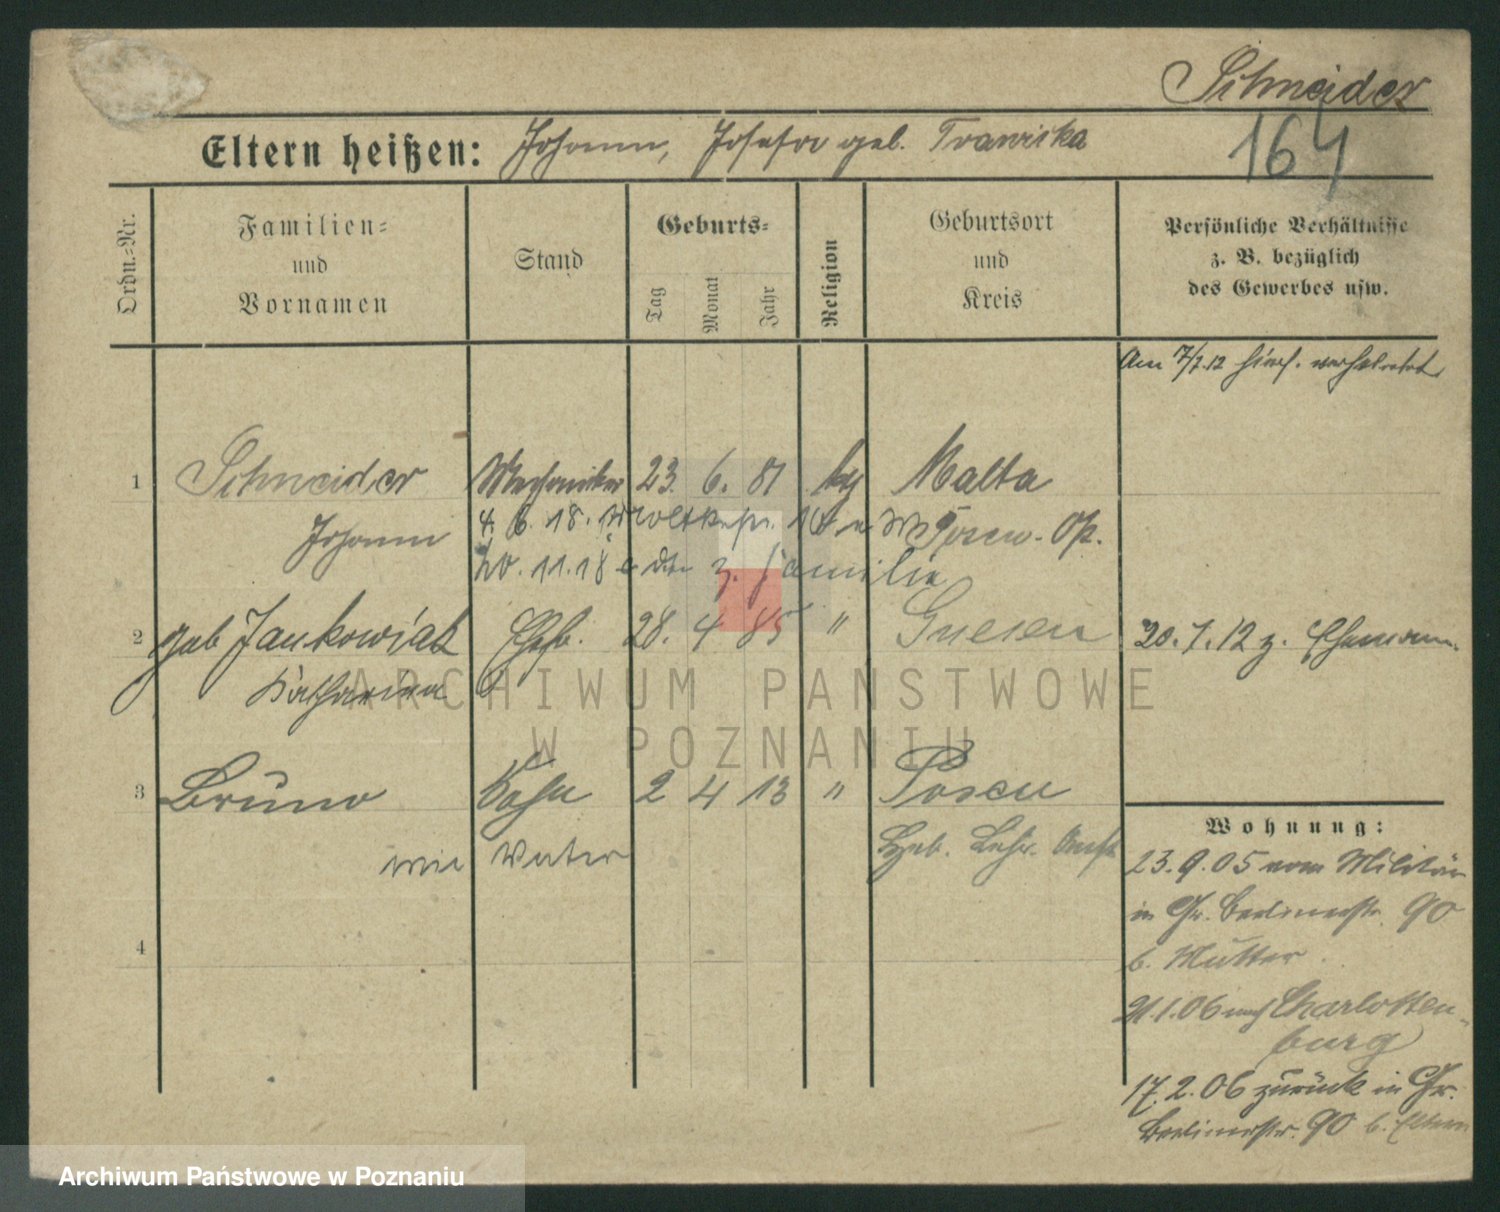 Schneider
164
Eltern heißen: Johann, Josefa geb.
Ordn.=Nr.
Familien=
und
Vornamen
Stand
Geburts=
Tag
Monat
Jahr
Religion
Geburtsort
und
Kreis
Persönliche Verhältnisse
z. B. bezüglich
des Gewerbes usw.
Am 7/7.12 hies. verheiratet
1 Schneider Mechaniker 23. 6. 81 Malta
Johann 4. 6. 18.
20. 11. 18 z. Familie
2 geb Jankowiak Ehefr. 28. 4 85 " Gnesen 20. 7. 12 z. Ehemann.
Katharina
3 Bruno Sohn 2 4 13 " Posen
wie Vater
4
Wohnung:
23. 9. 05 vom Militär
in Gr. Berlinerstr. 90
b. Mutter.
21. 1. 06 nach Charlotten-
burg
17. 2. 06 zurück in Gr.
Berlinerstr. 90 b. Eltern
ARCHIWUM PAŃSTWOWE
W POZNANIU
Archiwum Państwowe w Poznaniu